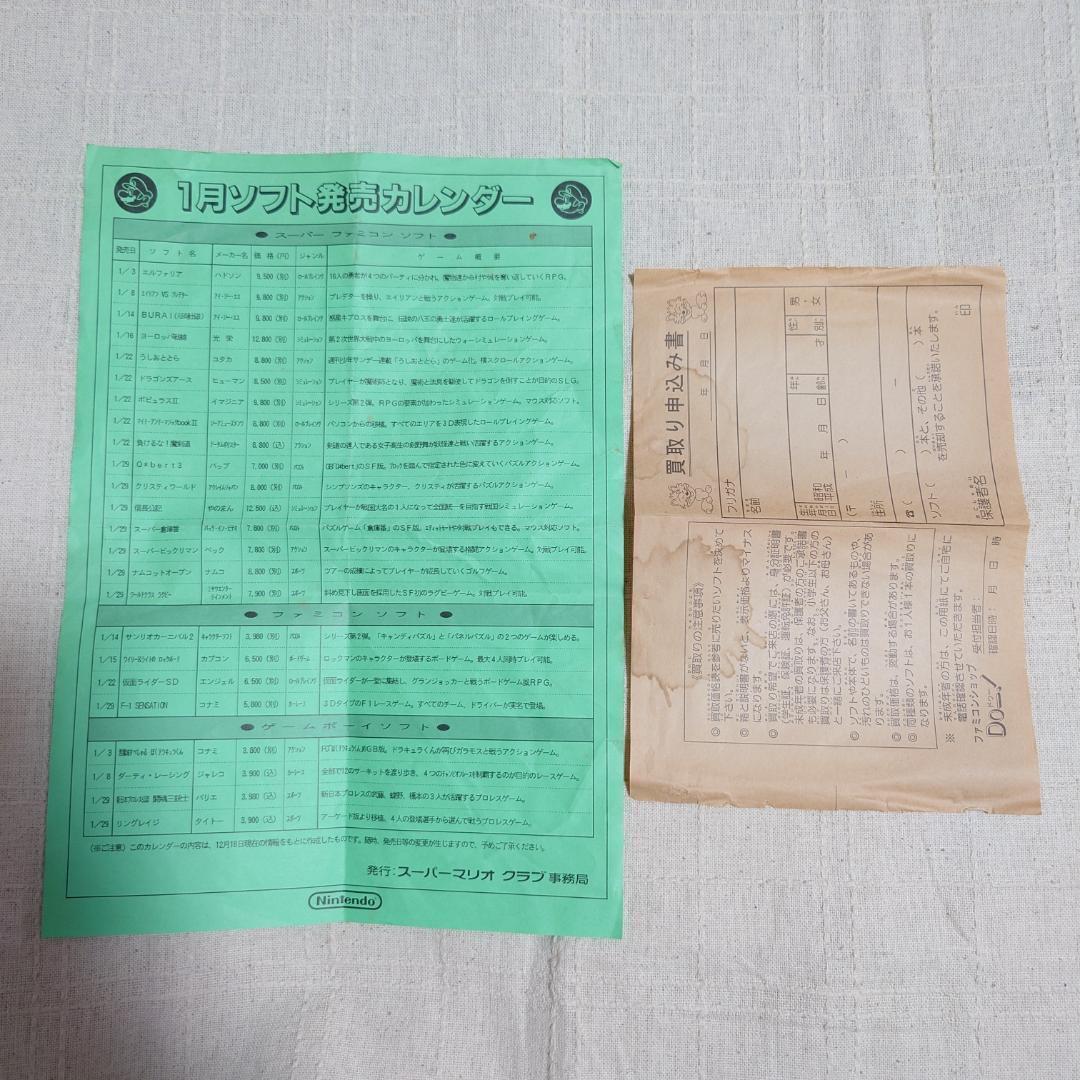 1月ソフト発売カレンダー
● スーパー ファミコン ソフト ●
発売日 ソフト名 メーカー名 価格(円) ジャンル ゲーム概要
1/3 エルファリア ハドソン 9,500(別) ロールプレイング 16人の勇者が4つのパーティに分かれ、魔物達から村や城を奪い返していくRPG。
1/8 エイリアン VS プレデター アイ・ジー・エス 8,800(別) アクション プレデターを操り、エイリアンと戦うアクションゲーム。対戦プレイ可能。
1/14 BURAI アイ・ジー・エス 9,800(別) ロールプレイング 惑星キプロスを舞台に、伝説の八玉の勇士達が活躍するロールプレイングゲーム。
1/16 ヨーロッパ戦線 光栄 12,800(別) シミュレーション 第2次世界大戦中のヨーロッパを舞台にしたウォーシミュレーションゲーム。
1/22 うしおととら ユタカ 8,800(別) アクション 週刊少年サンデー連載「うしおととら」のゲーム化。横スクロールアクションゲーム。
1/22 ドラゴンズアース ヒューマン 8,500(別) シミュレーション プレイヤーが魔術師となり、魔術と法具を駆使してドラゴンを倒すことが目的のSLG。
1/22 ポピュラスII イマジニア 9,800(別) シミュレーション シリーズ第2弾。RPGの要素が加わったシミュレーションゲーム。マウス対応ソフト。
1/22 8,800(別) ロールプレイング パソコンからの移植。すべてのエリアを3D表現したロールプレイングゲーム。
1/22 負けるな!魔剣道 8,800(込) アクション 剣道の達人である女子高生の剣野舞が妖怪達と戦い活躍するアクションゲーム。
1/29 Q✱bert3 バップ 7,000(別) パズル 「Q✱bert」のSF版。ブロックを踏んで指定された色に変えていくパズルアクションゲーム。
1/29 クリスティワールド アクレイムジャパン 8,000(別) パズル シンプソンズのキャラクター、クリスティが活躍するパズルアクションゲーム。
1/29 信長公記 やのまん 12,500(込) シミュレーション プレイヤーが戦国大名の1人になって全国統一を目指す戦国シミュレーションゲーム。
1/29 スーパー倉庫番 パック・イン・ビデオ 7,800(別) パズル パズルゲーム「倉庫番」のSF版。エディットモードや対戦プレイもできる。マウス対応ソフト。
1/29 スーパービックリマン ベック 7,800(別) アクション スーパービックリマンのキャラクターが登場する格闘アクションゲーム。対戦プレイ可能。
1/29 ナムコットオープン ナムコ 8,800(別) スポーツ ツアーの成績によってプレイヤーが成長していくゴルフゲーム。
1/29 ワールドクラス ラグビー 7,900(別) スポーツ 斜め見下し画面を採用したSF初のラグビーゲーム。対戦プレイ可能。
● ファミコン ソフト ●
1/14 サンリオカーニバル2 キャラクターソフト 3,980(別) パズル シリーズ第2弾。「キャンディパズル」と「パネルパズル」の2つのゲームが楽しめる。
1/15 ワイリー&ライトの ロックボード カプコン 6,500(別) ボードゲーム ロックマンのキャラクターが登場するボードゲーム。最大4人同時プレイ可能。
1/22 仮面ライダーSD エンジェル 6,500(別) ロールプレイング 仮面ライダーが一堂に集結し、グランジョッカーと戦うボードゲーム型RPG。
1/29 F-1 SENSATION コナミ 5,800(別) カーレース 3DタイプのF1レースゲーム。すべてのチーム、ドライバーが実名で登場。
● ゲームボーイソフト ●
1/3 コナミ 3,800(別) アクション ドラキュラくんが再びガラモスと戦うアクションゲーム。
1/8 ダーティ・レーシング ジャレコ 3,900(込) カーレース 全部で12のサーキットを渡り歩き、4つのチャンピオンレースを制覇するのが目的のレースゲーム。
1/29 新日本プロレス 闘魂三銃士 バリエ 3,980(込) スポーツ 新日本プロレスの武藤、蝶野、橋本の3人が活躍するプロレスゲーム。
1/29 リングレイジ タイトー 3,900(込) スポーツ アーケード版より移植。4人の登場選手から選んで戦うプロレスゲーム。
(※ご注意)このカレンダーの内容は、12月18日現在の情報をもとに作成したものです。随時、発売日等の変更が生じますので、予めご了承ください。
発行:スーパーマリオ クラブ 事務局
Nintendo
買取り申込み書
年 月 日
フリガナ
名前
性別 男・女
生年月日 昭和 平成 年 月 日 年齢 才
(〒 - )
住所
☎( ) -
ソフト( )本と、その他( )本
を売却することを承諾いたします。
保護者名 印
《買取りの注意事項》
◎ 買取価格表を参考に売りたいソフトを決めて下さい。
◎ 箱と説明書がないと、表示価格よりマイナスになります。
◎ 買取り希望でご来店の際には、身分証明書(学生証、保険証、運転免許証)が必要です。
未成年者の買取りは、保護者の方のご承諾書が必要になります。なお、小学生以下の方の買取りは保護者の方(お父さん、お母さん)と一緒にご来店下さい。
◎ ソフトや本体で、名前の書いてあるものや、汚れのひどいものは買取りできない場合があります。
◎ 買取価格は、変動する場合があります。
◎ 同種類のソフトは、お1人様1本の買取りになります。
※ 未成年者の方は、この用紙にてご自宅に電話確認させていただきます。
ファミコンショップ 受付担当者:
Do〜! ドゥー 確認日時: 月 日 時